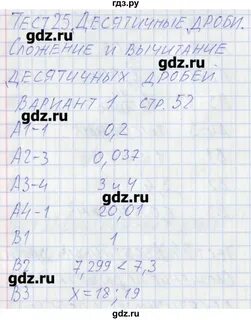 гдз.ру
ТЕСТ 25. ДЕСЯТИЧНЫЕ ДРОБИ.
СЛОЖЕНИЕ И ВЫЧИТАНИЕ
ДЕСЯТИЧНЫХ ДРОБЕЙ
ВАРИАНТ 1 СТР. 52
А1-1 0,2
А2-3 0,037
А3-4 3 и 4
А4-1 20,01
В1 1
В2 7,299 < 7,3
В3 Х=18; 19